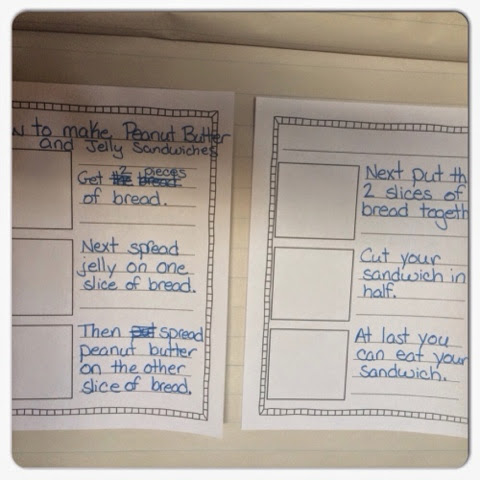 w to make Peanut Butter
and Jelly Sandwiches
Get 2 pieces
of bread.
Next spread
jelly on one
slice of bread.
Then spread
peanut butter
on the other
slice of bread.
Next put th
2 slices of
bread togeth
Cut your
sandwich in
half.
At last you
can eat your
sandwich.